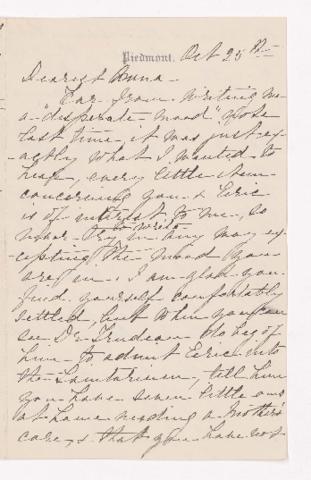 Piedmont. Oct 25th
Dearest Anna -
"Far from writing me
a disperate mood" your
last time, it was just ex-
-actly what I wanted to
hear, every little item
concerning you & Eric
is of interest to me, so
never try to write in any way ex-
cepting the mood you
are in. I am glad you
find yourself comfortably
settled, but when you can
see Dr Trudeau do beg of
him to admit Eric into
the Sanitarium, tell him
you have seven little ones
at home needing a mother's
care, & that you have not